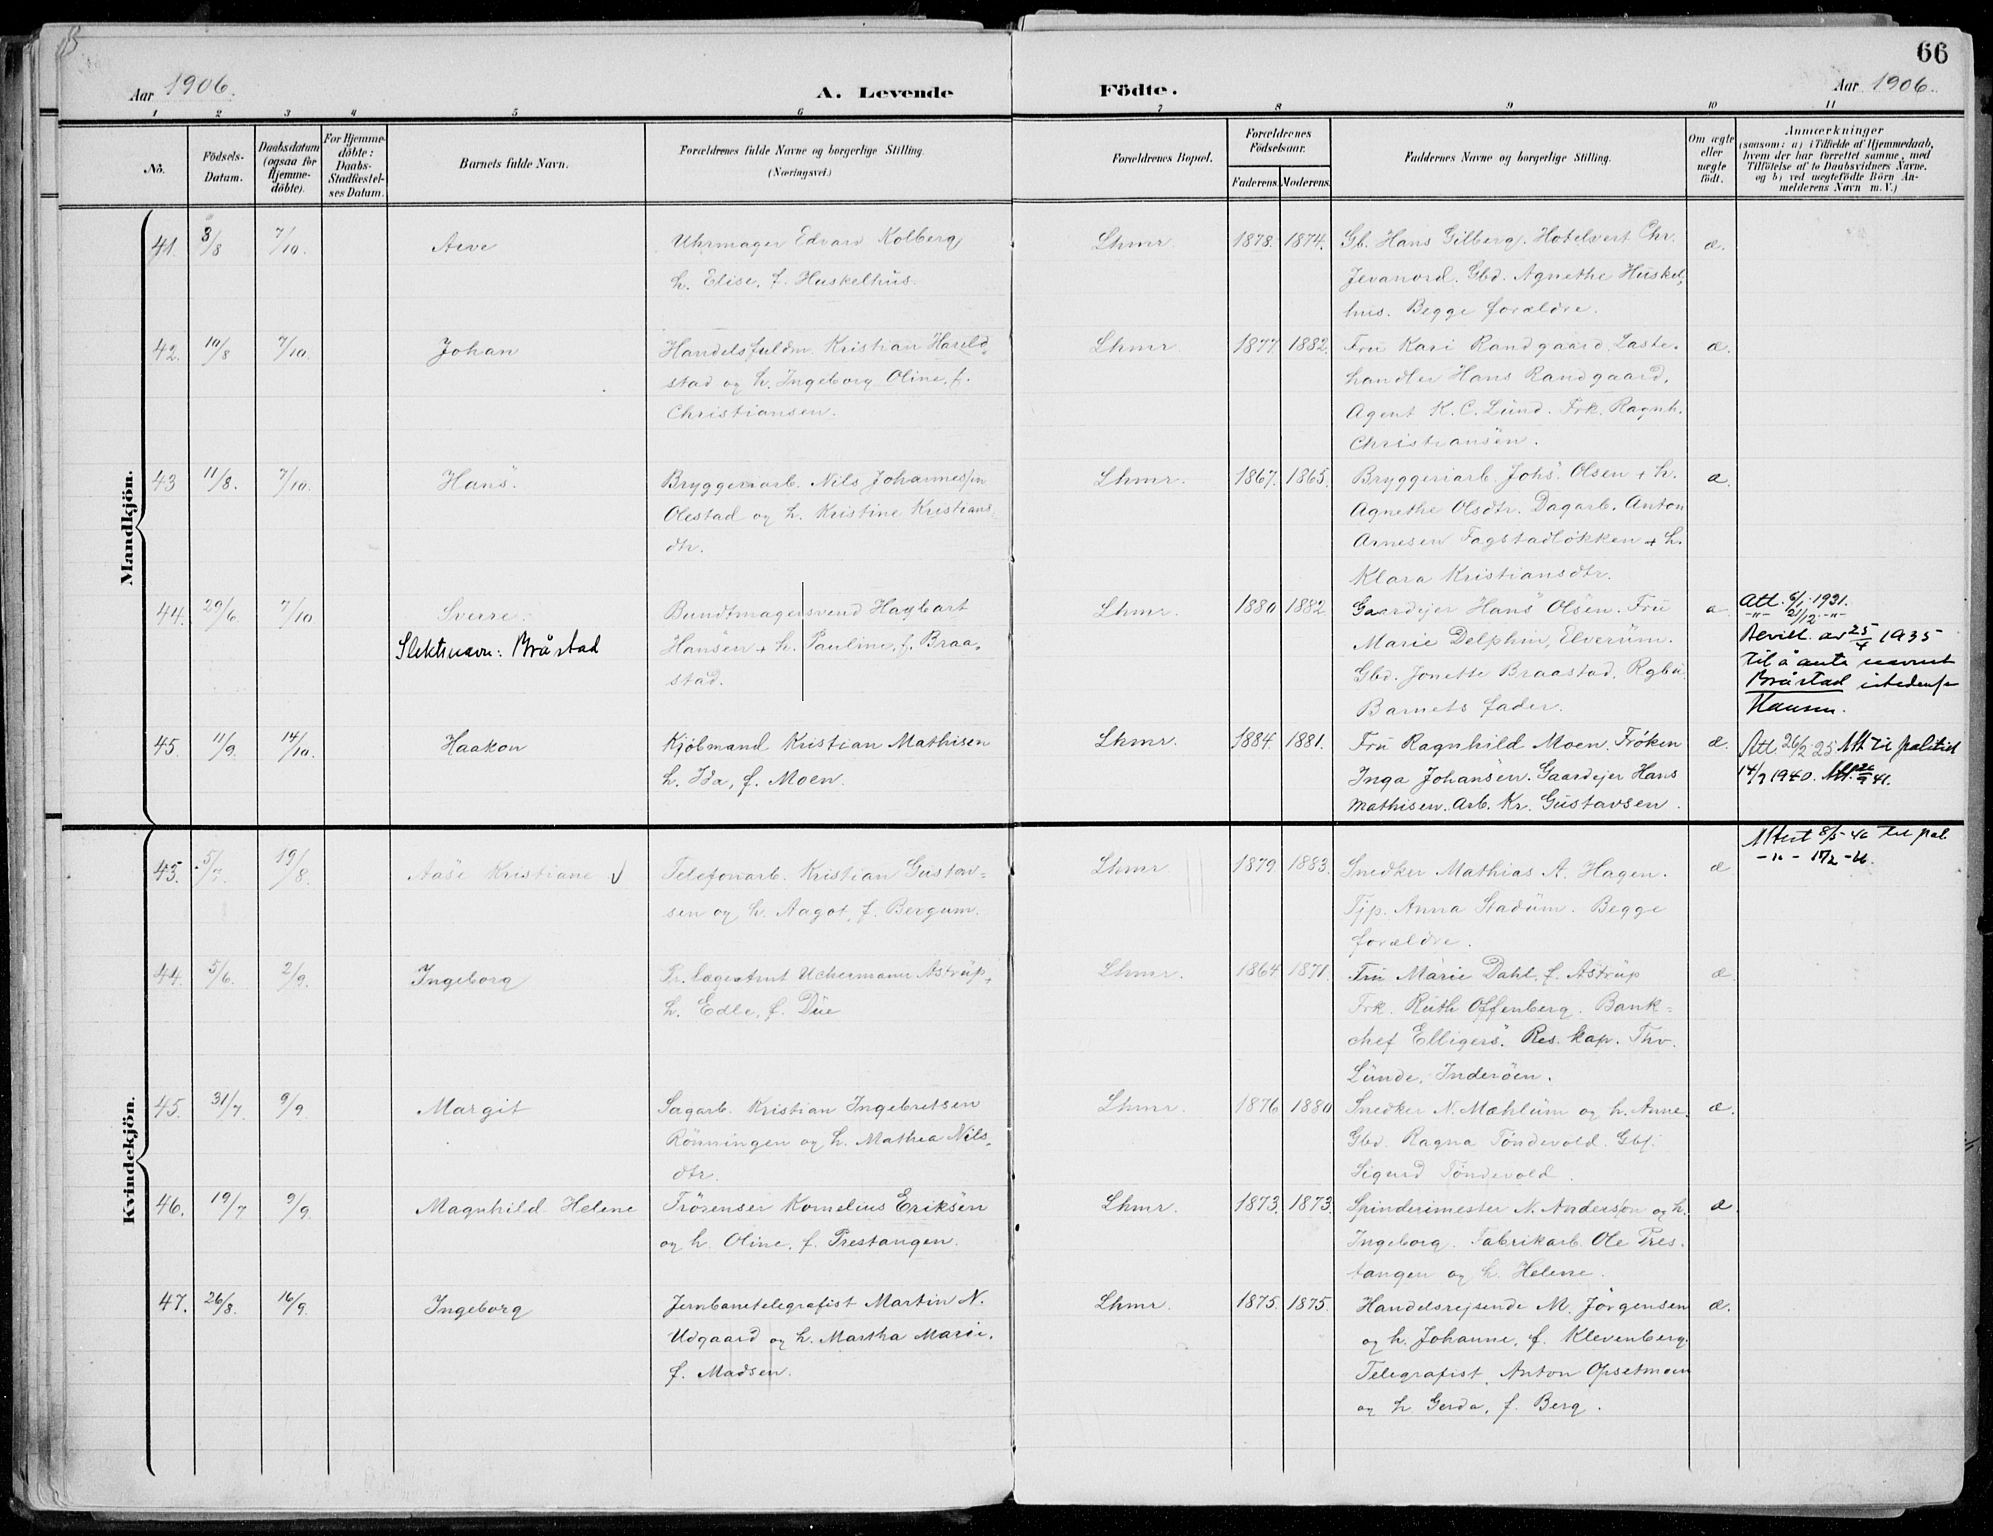 66
Aar 1906.
A. Levende Födte.
Aar 1906.
1 2 3 4 5 6 7 8 9 10 11
No.
Födsels-Datum.
Daabsdatum (ogsaa for Hjemme-döbte).
For Hjemme-döbte: Daabs-Stadfæstel-ses Datum.
Barnets fulde Navn.
Forældrenes fulde Navne og borgerlige Stilling.
(Næringsvei.)
Forældrenes Bopæl.
Forældrenes Födselsaar.
Faderens. Moderens.
Faddernes Navne og borgerlige Stilling.
Om ægte eller uægte födt.
Anmærkninger
(saasom: a) i Tilfælde af Hjemmedaab,
hvem der har forrettet samme, med
Tilföielse af to Daabsvidners Navne,
og b) ved uægtefödte Börn An-
melderens Navn m. V.)
Mandkjön.
41. 3/8 7/10. Arve Uhrmager Edvard Kolberg Lhmr. 1878. 1874. Gb. Hans Gilberg. Hotelvert Chr. æ.
h. Elise, f. Huskelhus. Jevanord. Gbd. Agnethe Huskel,
hus. Begge forældre.
42. 10/8 7/10. Johan Handelsfuldm. Kristian Harild- Lhmr 1877. 1882. Fru Kari Randgaard. Laste- æ.
stad og h. Ingeborg Oline, f. handler Hans Randgaard.
Christiansen. Agent K. C. Lund. Frk. Ragnh.
Christiansen.
43 11/8. 7/10. Hans. Bryggeriarb. Nils Johannessen Lhmr. 1867. 1865. Bryggeriarb. Johs. Olsen + h. æ.
Olestad og h. Kristine Kristians- Agnethe Olsdtr. Dagarb. Anton
dtr. Arnesen Fagstadløkken + h.
Klara Kristiansdtr.
44. 29/6. 7/10 Sverre. Bundtmagersvend Haybart Lhmr. 1880 1882 Gaardejer Hans Olsen. Fru æ Att. 6/1 1931.
-"- 21/12 -"-
Slektsnavn: Bråstad Hansen + h. Pauline, f. Braa- Marie Delphin, Elverum. Bevill. av 25/4 1935
stad. Gbd. Jonette Braastad, Rgbu. til å anta navnet
Barnets fader. Bråstad istedenfor
Hansen.
45. 11/9. 14/10. Haakon Kjøbmand Kristian Mathisen Lhmr. 1884. 1881. Fru Ragnhild Moen. Frøken æ. Att 26/2 25 Att til politiet
h. Ida, f. Moen. Inga Johansen. Gaardejer Hans 14/9 1940.
Mathisen. Arb. Kr. Gustavsen.
Kvindekjön.
43. 5/7. 19/8. Aase Kristiane Telefonarb. Kristian Gustav- Lhmr 1879. 1883. Snedker Mathias A. Hagen. æ Attest 8/5-40 til pol
sen og h. Aagot, f. Bergum. Tjp. Anna Stadum. Begge
forældre.
44. 5/6. 2/9. Ingeborg Pr. læge Amt Uchermann Astrup, Lhmr. 1864 1871. Fru Marie Dahl, f. Astrup æ.
h. Edle, f. Due Frk. Ruth Offenberg. Bank-
chef Elligers. Res. kap. Thv.
Lunde, Inderøen.
45. 31/7 9/9. Margit Sagarb. Kristian Ingebretsen Lhmr. 1876 1880 Snedker N. Mæhlum og h. Anne. æ.
Rönningen og h. Mathea Nils- Gbd. Ragna Töndevold. Gbs.
dtr. Sigurd Töndevold.
46. 19/7 9/9. Magnhild Helene Trörenser Kornelius Eriksen Lhmr. 1873. 1873. Spinderimester N. Andersen og h. æ.
og h. Oline, f. Prestangen. Ingeborg. Fabrikarb. Ole Pres-
tangen og h. Helene.
47. 26/8. 16/9. Ingeborg Jernbanetelegrafist Martin N. Lhmr. 1875. 1875. Handelsrejsende M. Jörgensen æ.
Udgaard og h. Martha Marie, og h. Johanne, f. Klevenberg.
f. Madsen. Telegrafist. Anton Opsetmoen
og h Gerda, f. Berg.